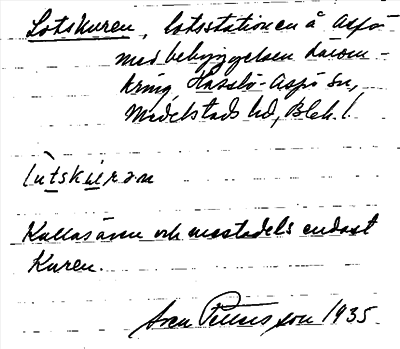 Lotskuren, lotsstationen å Aspö
med bebyggelsen därom-
kring, Hasslö-Aspö sn,
Medelstads hd, Blek. l.
lùtskúrən
Kallas även och mestadels endast
Kuren.
Sven Pettersson 1935